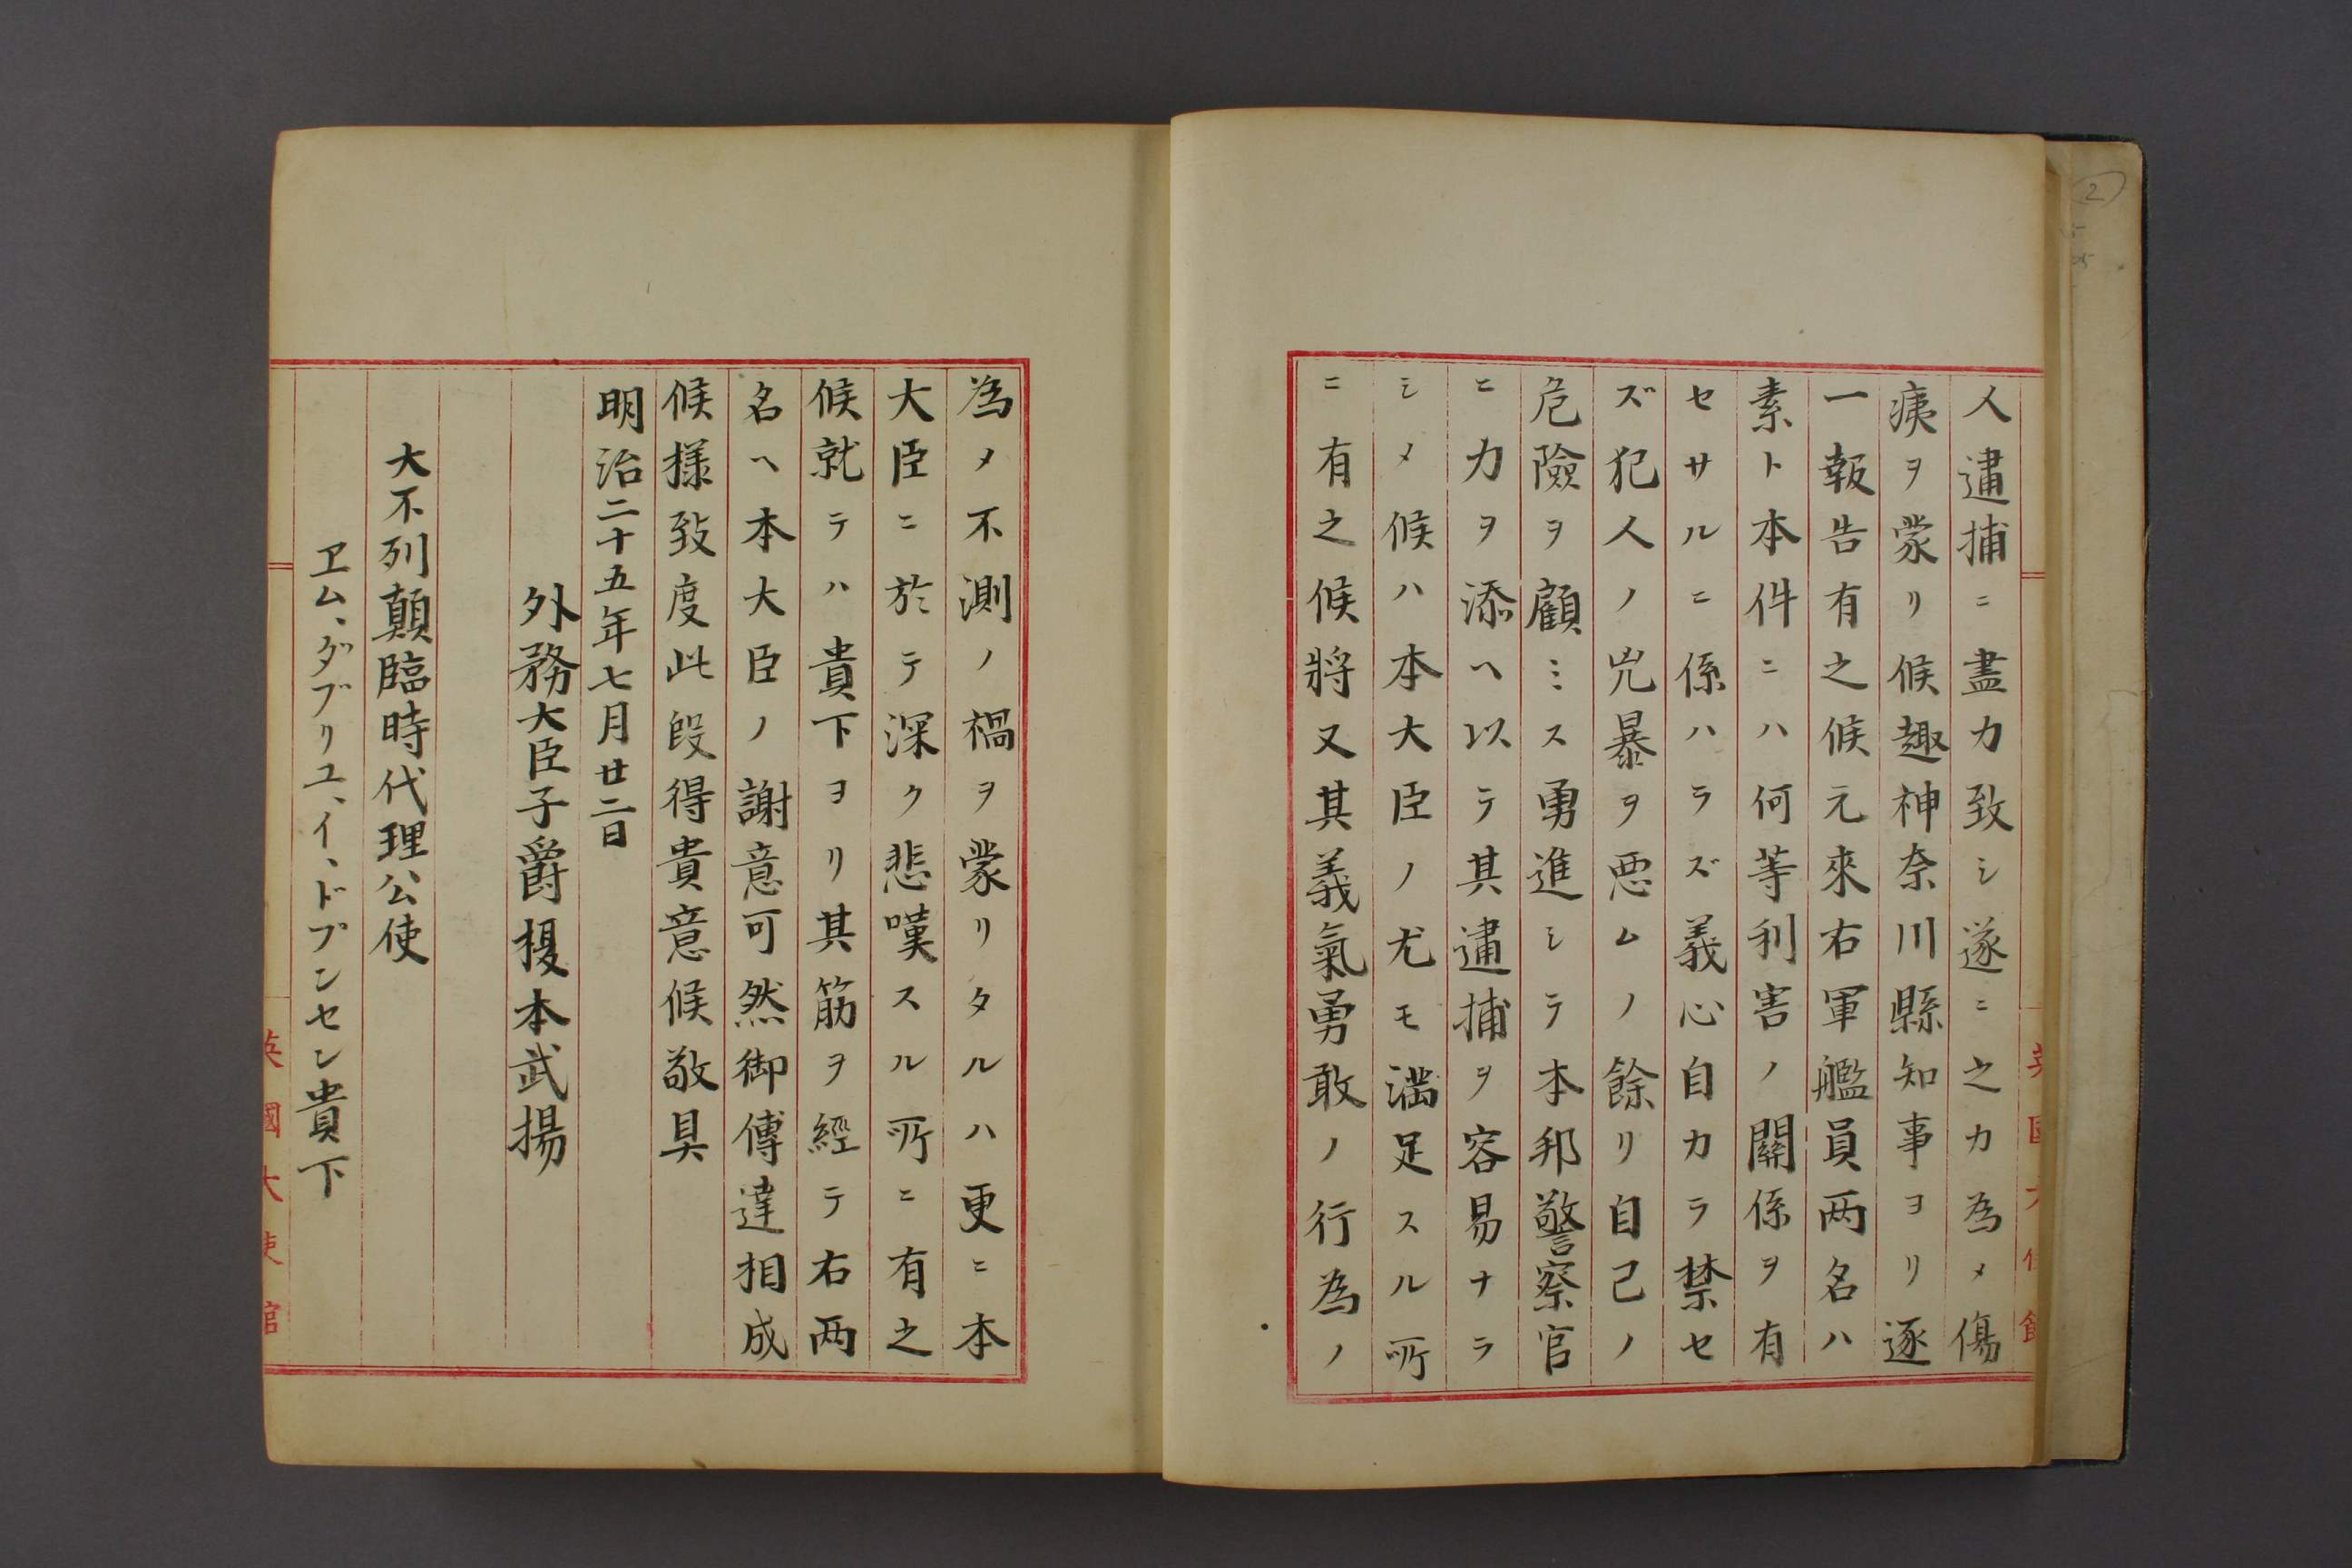 人逮捕ニ盡力致シ遂ニ之カ為メ傷
痍ヲ蒙リ候趣神奈川縣知事ヨリ逐
一報告有之候元來右軍艦員两名ハ
素ト本件ニハ何等利害ノ關係ヲ有
セサルニ係ハラズ義心自カラ禁セ
ズ犯人ノ兇暴ヲ悪ムノ餘リ自己ノ
危險ヲ顧ミス勇進シテ本邦警察官
ニ力ヲ添ヘ以テ其逮捕ヲ容易ナラ
シメ候ハ本大臣ノ尤モ満足スル所
ニ有之候將又其義氣勇敢ノ行為ノ
為メ不測ノ禍ヲ蒙リタルハ更ニ本
大臣ニ於テ深ク悲嘆スル所ニ有之
候就テハ貴下ヨリ其筋ヲ經テ右两
名ヘ本大臣ノ謝意可然御傳達相成
候様致度此段得貴意候敬具
明治二十五年七月廿二日
外務大臣子爵榎本武揚
大不列顛臨時代理公使
ヱム、ダブリユ、イ、ドブンセン貴下
英國大使館